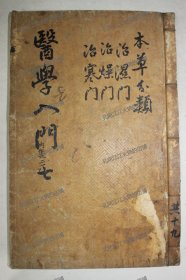 本草分類
治濕門
治燥門
治寒門
醫學入門
七
共十九